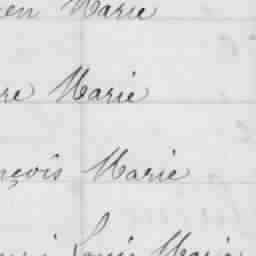 en Marie
re Marie
nçois Marie
Louis Marie